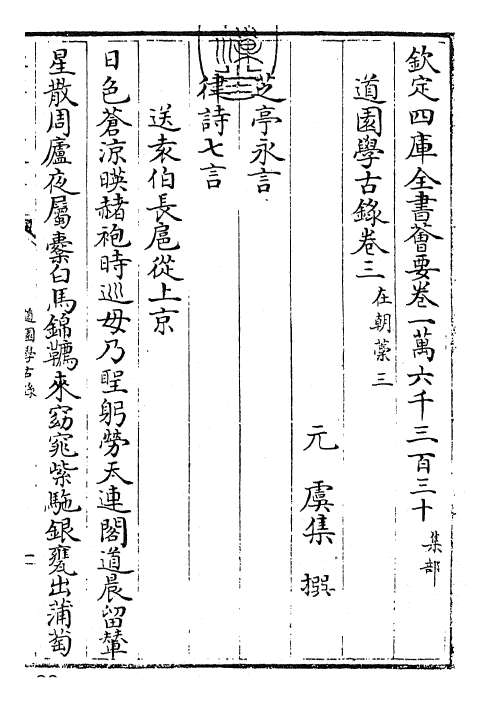 欽定四庫全書薈要卷一萬六千三百三十　集部
道園學古錄卷三　在朝藁三
元　虞集　撰
芝亭永言
律詩七言
送袁伯長扈從上京
日色蒼涼暎赭袍時巡毋乃聖躬勞天連閣道晨留輦
星散周廬夜屬櫜白馬錦韉來窈窕紫駞銀甕出蒲萄
道園學古錄
一